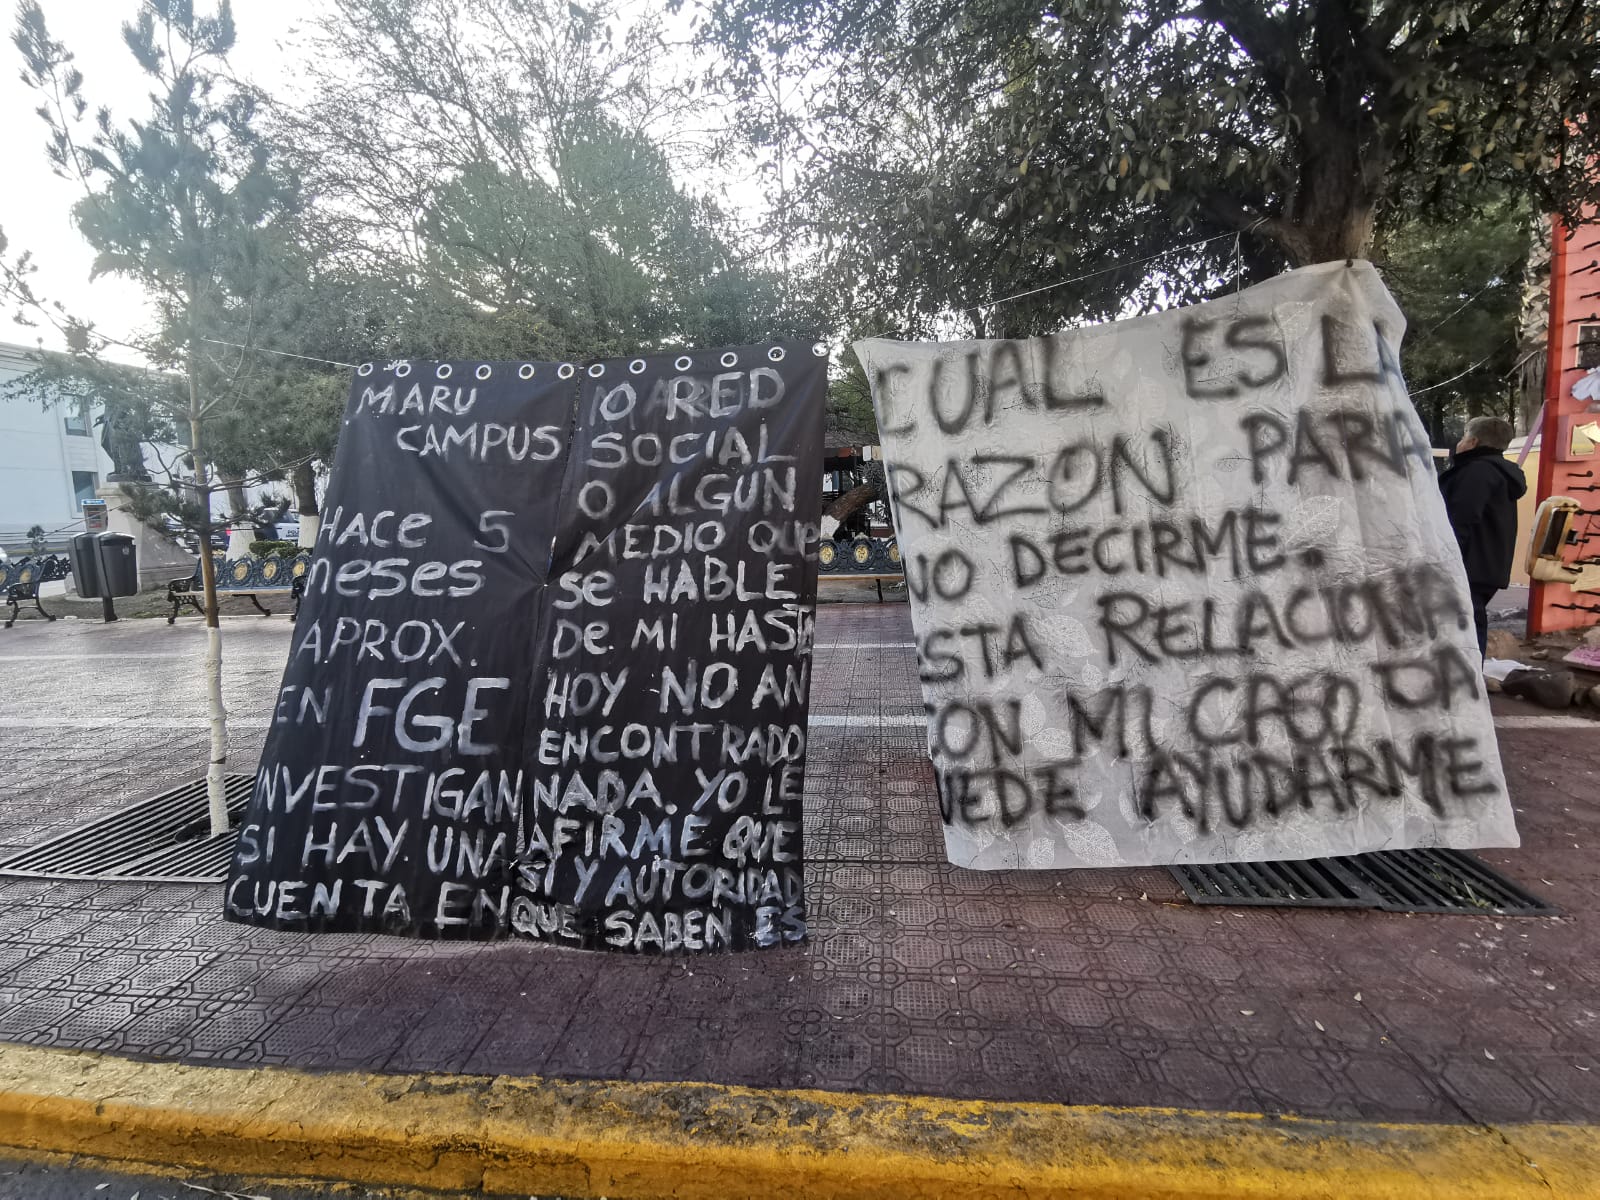 MARU
CAMPUS
HACE 5
meses
APROX.
EN FGE
INVESTIGAN
SI HAY UNA
CUENTA EN
O RED
SOCIAL
O ALGUN
MEDIO QUe
Se HABLE
De MI HASTA
HOY NO AN
ENCONTRADO
NADA. YO LE
AFIRME QUE
SI Y AUTORIDAD
QUE SABEN ES
CUAL ES LA
RAZON PARA
NO DECIRME.
ESTA RELACIONA
CON MI CASO DA
UEDE AYUDARME